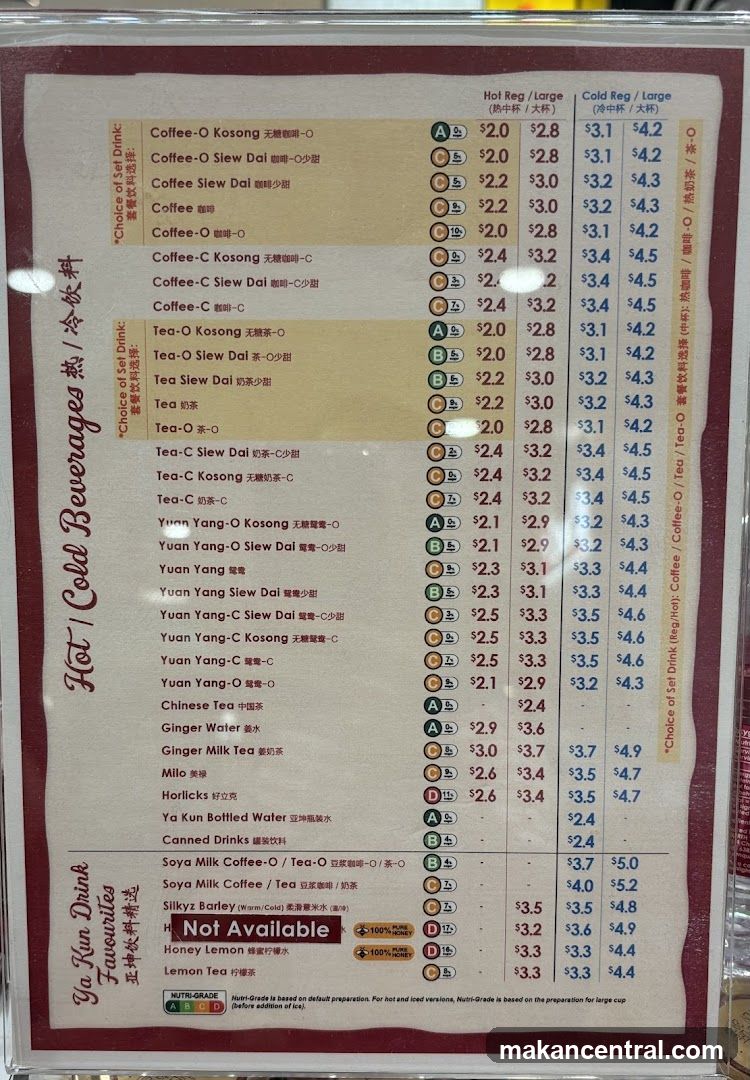 Hot Reg / Large Cold Reg / Large
(热中杯 / 大杯) (冷中杯 / 大杯)
*Choice of Set Drink:
套餐饮料选择:
Coffee-O Kosong 无糖咖啡-O A 0% $2.0 $2.8 $3.1 $4.2
Coffee-O Siew Dai 咖啡-O少甜 C 5% $2.0 $2.8 $3.1 $4.2
Coffee Siew Dai 咖啡少甜 C 5% $2.2 $3.0 $3.2 $4.3
Coffee 咖啡 C 9% $2.2 $3.0 $3.2 $4.3
Coffee-O 咖啡-O C 10% $2.0 $2.8 $3.1 $4.2
Coffee-C Kosong 无糖咖啡-C C 0% $2.4 $3.2 $3.4 $4.5
Coffee-C Siew Dai 咖啡-C少甜 C 3% .2 $3.4 $4.5
Coffee-C 咖啡-C C 7% $2.4 $3.2 $3.4 $4.5
*Choice of Set Drink:
套餐饮料选择:
Tea-O Kosong 无糖茶-O A 0% $2.0 $2.8 $3.1 $4.2
Tea-O Siew Dai 茶-O少甜 B 5% $2.0 $2.8 $3.1 $4.2
Tea Siew Dai 奶茶少甜 B 5% $2.2 $3.0 $3.2 $4.3
Tea 奶茶 C 9% $2.2 $3.0 $3.2 $4.3
Tea-O 茶-O C $2.0 $2.8 $3.1 $4.2
Tea-C Siew Dai 奶茶-C少甜 C $2.4 $3.2 $3.4 $4.5
Tea-C Kosong 无糖奶茶-C C 0% $2.4 $3.2 $3.4 $4.5
Tea-C 奶茶-C C 7% $2.4 $3.2 $3.4 $4.5
Yuan Yang-O Kosong 无糖鸳鸯-O A 0% $2.1 $2.9 $3.2 $4.3
Yuan Yang-O Siew Dai 鸳鸯-O少甜 B 5% $2.1 $2.9 $3.2 $4.3
Yuan Yang 鸳鸯 C 9% $2.3 $3.1 $3.3 $4.4
Yuan Yang Siew Dai 鸳鸯少甜 B 5% $2.3 $3.1 $3.3 $4.4
Yuan Yang-C Siew Dai 鸳鸯-C少甜 C 3% $2.5 $3.3 $3.5 $4.6
Yuan Yang-C Kosong 无糖鸳鸯-C C 0% $2.5 $3.3 $3.5 $4.6
Yuan Yang-C 鸳鸯-C C 7% $2.5 $3.3 $3.5 $4.6
Yuan Yang-O 鸳鸯-O C 9% $2.1 $2.9 $3.2 $4.3
Chinese Tea 中国茶 A 0% - $2.4 - -
Ginger Water 姜水 A 0% $2.9 $3.6 - -
Ginger Milk Tea 姜奶茶 C 8% $3.0 $3.7 $3.7 $4.9
Milo 美禄 C 9% $2.6 $3.4 $3.5 $4.7
Horlicks 好立克 D 11% $2.6 $3.4 $3.5 $4.7
Ya Kun Bottled Water 亚坤瓶装水 A 0% - - $2.4 -
Canned Drinks 罐装饮料 B 4% - - $2.4 -
Hot / Cold Beverages 热 / 冷饮料
*Choice of Set Drink (Reg/Hot): Coffee / Coffee-O / Tea / Tea-O 套餐饮料选择 (中杯): 热咖啡 / 咖啡-O / 热奶茶 / 茶-O
Ya Kun Drink
Favourites
亚坤饮料精选
Soya Milk Coffee-O / Tea-O 豆浆咖啡-O / 茶-O B 4% - - $3.7 $5.0
Soya Milk Coffee / Tea 豆浆咖啡 / 奶茶 C 7% - - $4.0 $5.2
Silkyz Barley (Warm/Cold) 柔滑薏米水 (温/冷) C 7% - $3.5 $3.5 $4.8
H Not Available 100% PURE HONEY D 17% - $3.2 $3.6 $4.9
Honey Lemon 蜂蜜柠檬水 100% PURE HONEY D 16% - $3.3 $3.3 $4.4
Lemon Tea 柠檬茶 C 8% - $3.3 $3.3 $4.4
NUTRI-GRADE
A B C D
Nutri-Grade is based on default preparation. For hot and iced versions, Nutri-Grade is based on the preparation for large cup
(before addition of ice).
makancentral.com